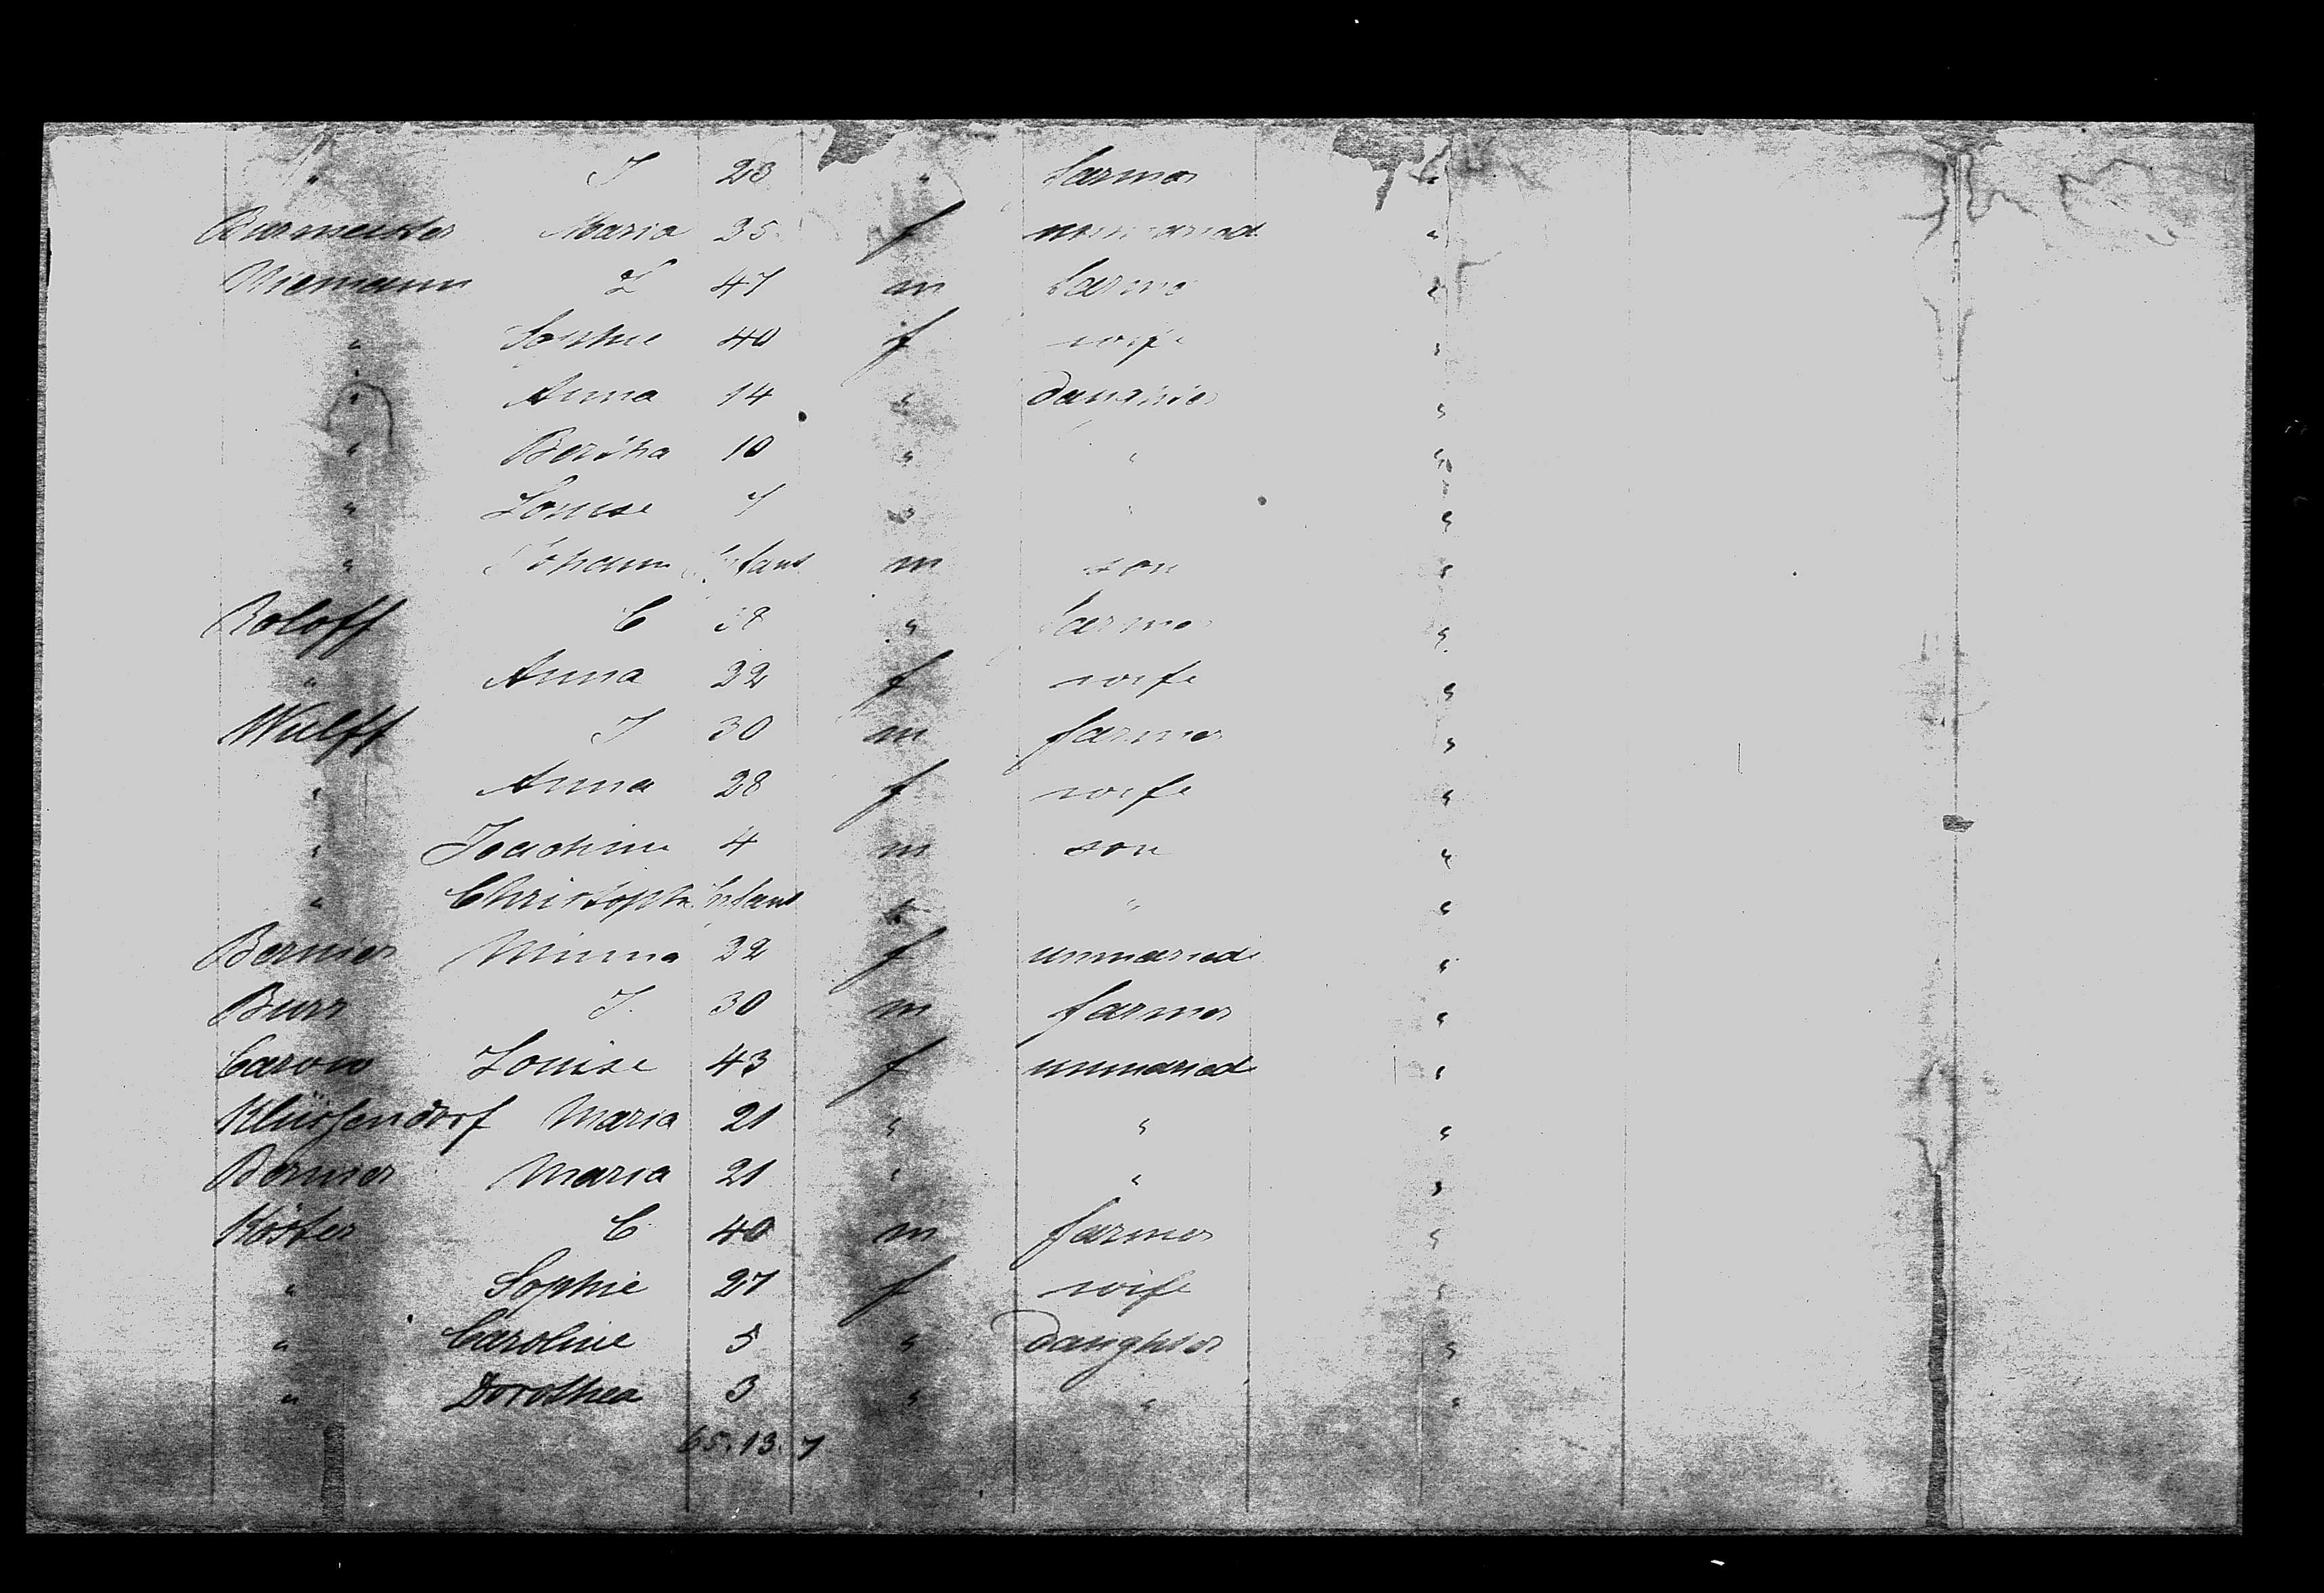 " J 23 " farmer "
Burmeister Maria 35 f unmaried "
Niemann L 47 m farmer "
" Sophie 40 f wife "
" Anna 14 " daughter "
" Bertha 10 " " "
" Louise 7 " " "
" Johann Infant m son "
Roloff C 38 " farmer "
" Anna 32 f wife "
Wulff J 30 m farmer "
" Anna 28 f wife "
" Joachim 4 m son "
" Christoph Infant " " "
Bernier Minna 32 f unmaried "
Burr J. 30 m farmer "
Carow Louise 43 f unmaried "
Klüssendorf Maria 21 " " "
Bernier Maria 21 " " "
Köster C 40 m farmer "
" Sophie 27 f wife "
" Caroline 5 " daughter "
" Dorothea 3 " " "
65.13.7